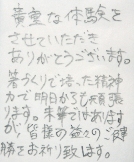 貴重な体験を
させていただき
ありがとうございます。
箸づくりで培った精神
力で明日からも頑張
ります。末筆ではあります
が皆様の益々のご健
勝をお祈り致します。